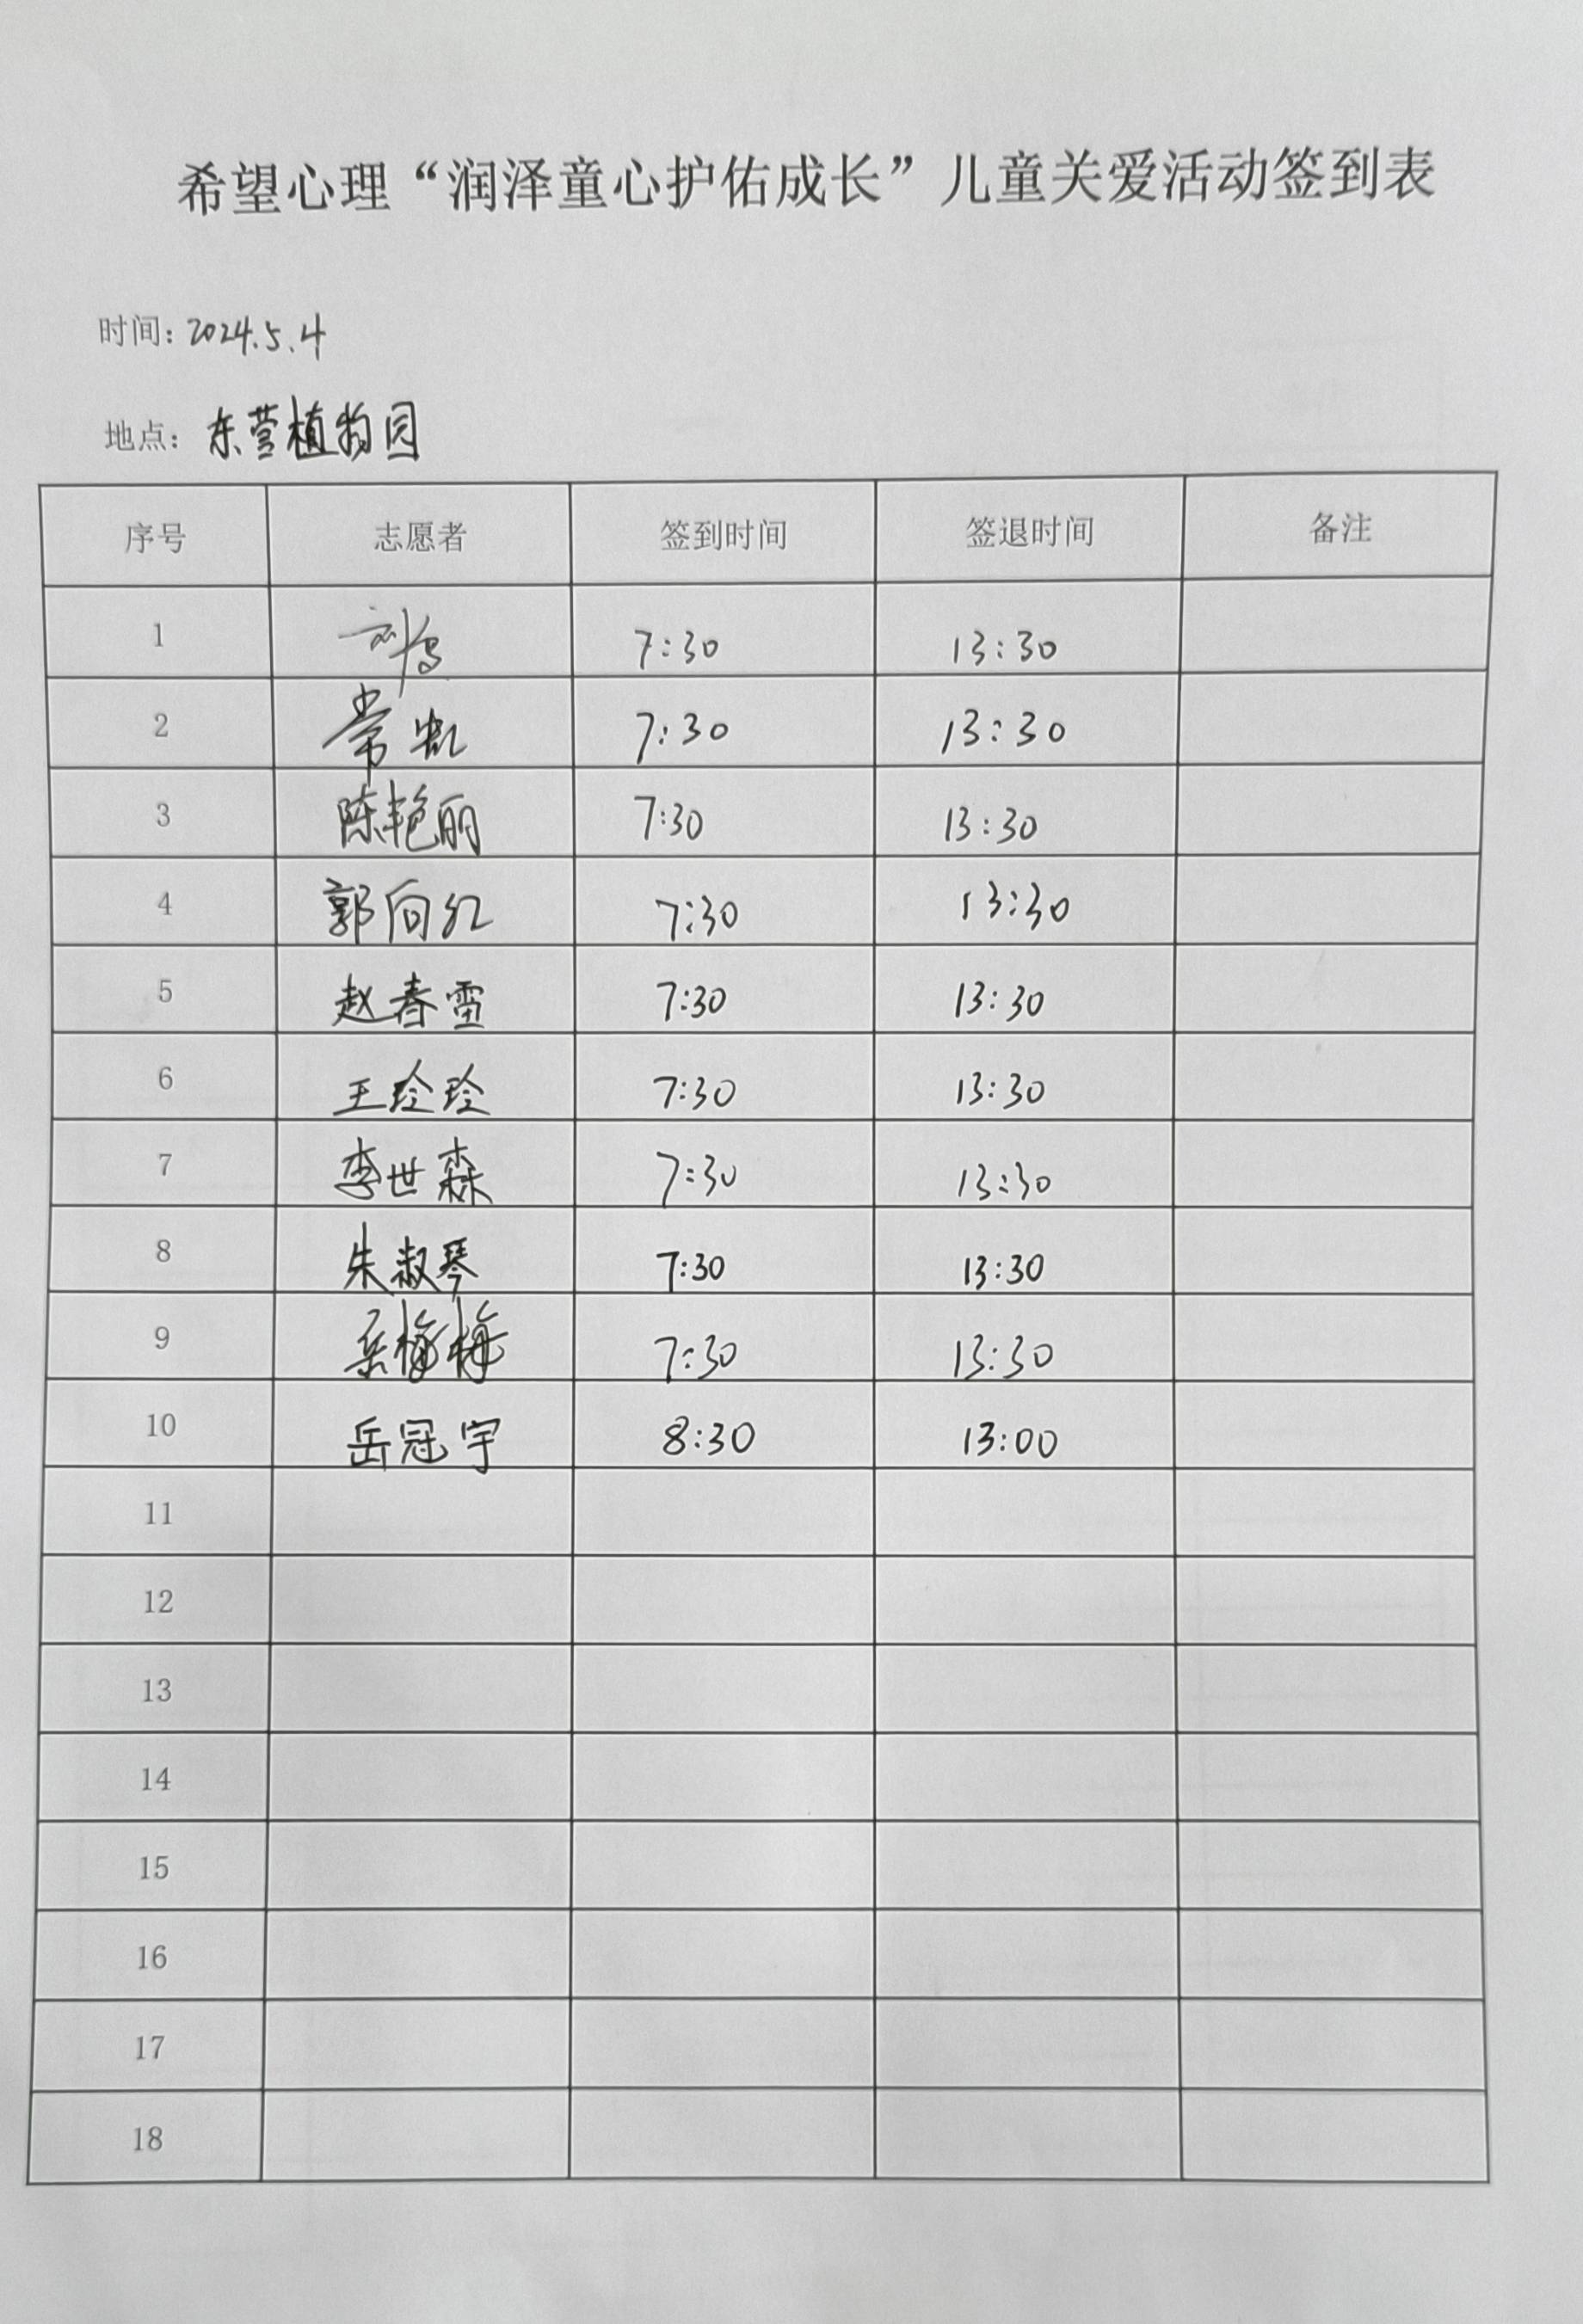 希望心理“润泽童心护佑成长”儿童关爱活动签到表
时间: 2024.5.4
地点: 东营植物园
序号 志愿者 签到时间 签退时间 备注
1 7:30 13:30
2 常 7:30 13:30
3 陈艳丽 7:30 13:30
4 郭向红 7:30 13:30
5 赵春雷 7:30 13:30
6 王玲玲 7:30 13:30
7 李世森 7:30 13:30
8 朱淑琴 7:30 13:30
9 梅梅 7:30 13:30
10 岳冠宇 8:30 13:00
11
12
13
14
15
16
17
18